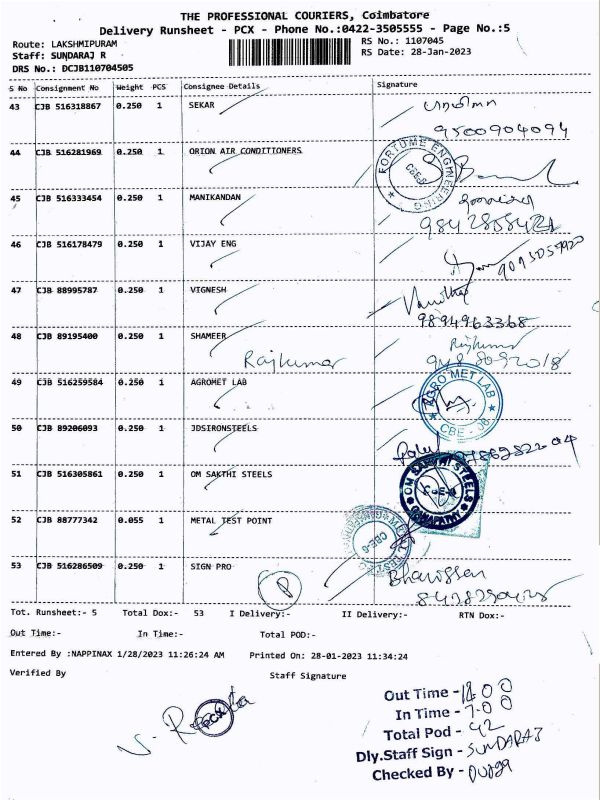 THE PROFESSIONAL COURIERS, Coimbatore
Delivery Runsheet - PCX - Phone No.:0422-3505555 - Page No.:5
Route: LAKSHMIPURAM
RS No.: 1107045
Staff: SUNDARAJ R
RS Date: 28-Jan-2023
DRS No.: DCJB110704505
S No Consignment No Weight PCS Consignee Details Signature
43 CJB 516318867 0.250 1 SEKAR
9500904094
44 CJB 516281969 0.250 1 ORION AIR CONDITIONERS
FORTUME ENGINEERING
CBE-6
45 CJB 516333454 0.250 1 MANIKANDAN
46 CJB 516178479 0.250 1 VIJAY ENG
47 CJB 88995787 0.250 1 VIGNESH
9894963368
48 CJB 89195400 0.250 1 SHAMEER
Rajkumar
Rajkumar
49 CJB 516259584 0.250 1 AGROMET LAB
AGRO MET LAB
CBE - 06
50 CJB 89206093 0.250 1 JDSIRONSTEELS
51 CJB 516305861 0.250 1 OM SAKTHI STEELS
OM SAKTHI STEELS
CBE-6
52 CJB 88777342 0.055 1 METAL TEST POINT
CBE-6
53 CJB 516286509 0.250 1 SIGN PRO
P
Tot. Runsheet:- 5 Total Dox:- 53 I Delivery:- II Delivery:- RTN Dox:-
Out Time:- In Time:- Total POD:-
Entered By :NAPPINAX 1/28/2023 11:26:24 AM Printed On: 28-01-2023 11:34:24
Verified By Staff Signature
PCX
Out Time - 12.00
In Time - 7.00
Total Pod - 42
Dly.Staff Sign - SUNDARAJ
Checked By - Durga